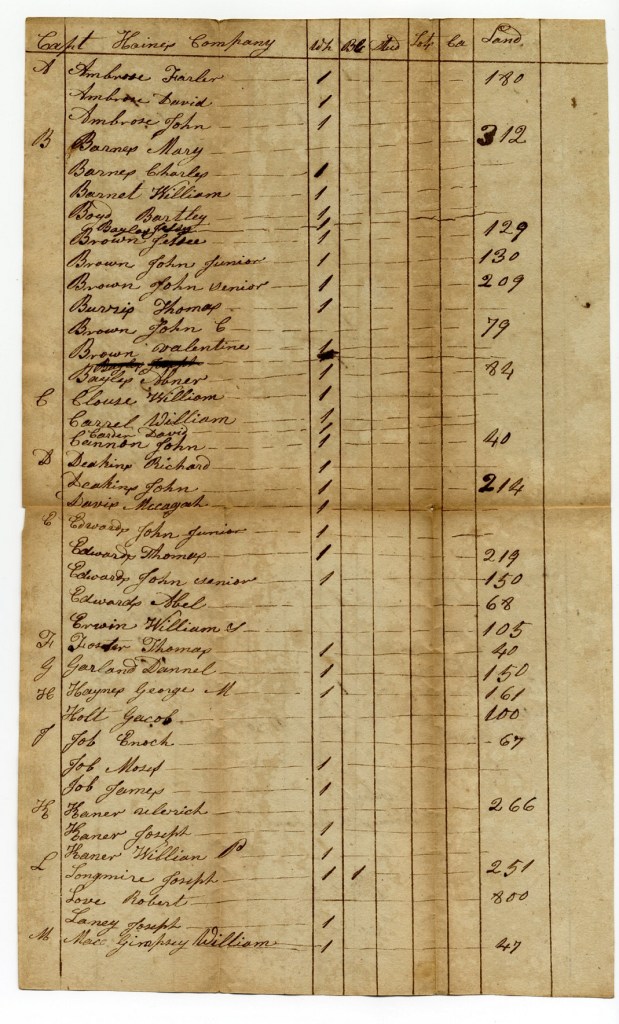 Capt Haines Company Wh Blc Stud Lots Ca Land
A Ambrose Farler 1 180
Ambrose David 1
Ambrose John 1
B Barnes Mary 312
Barnes Charles 1
Barnet William 1
Boyd Bartley 1
Bayles Jesse 1
Brown Jessee 1 129
Brown John Junior 1 130
Brown John Senior 1 209
Burris Thomas 1
Brown John C 79
Brown Valentine 1
Bayles Abner 1 84
C Clouse William 1
Carrel William 1
Carder David 1
Cannon John 1 40
D Deakins Richard 1
Deakins John 1 214
Davis Mecagah 1
E Edwards John Junior 1
Edwards Thomas 1 219
Edwards John Senior 1 150
Edwards Abel 68
Erwin William S 105
F Foster Thomas 1 40
G Garland Dannel 1 150
H Haynes George M 1 161
Holt Gacob 100
J Job Enoch 67
Job Moses 1
Job James 1
K Kaner Ulerich 266
Kaner Joseph 1
Kaner Willian P 1
L Longmire Joseph 1 1 251
Love Robert 800
Laney Joseph 1
M Macc Gimpsey William 1 47